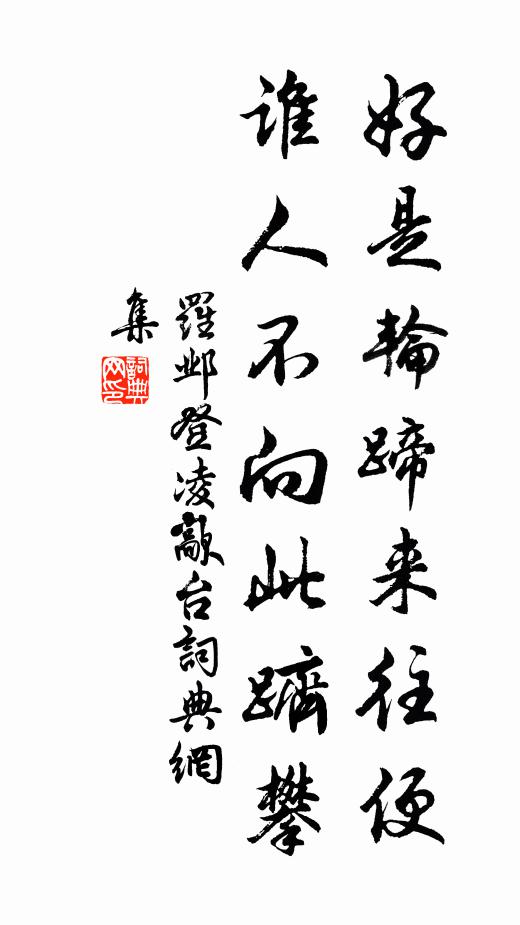 好是輪蹄来往便
誰人不向此躋攀
羅鄴登凌歊台詞典網
集
詞典网印